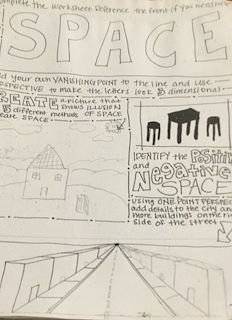 omplete the Worksheet. Reference the front if you need help
SPACE
d your own VANISHING POINT to the line and use
ERSPECTIVE to make the letters look 3 dimensional.
REATE a picture that
shows ILLUSION
3 different methods of SPACE
eate SPACE
IDENTIFY the POSITIV
and
Negative
SPACE
USING ONE POINT PERSPE
add details to the city an
more buildings on the ri
side of the street